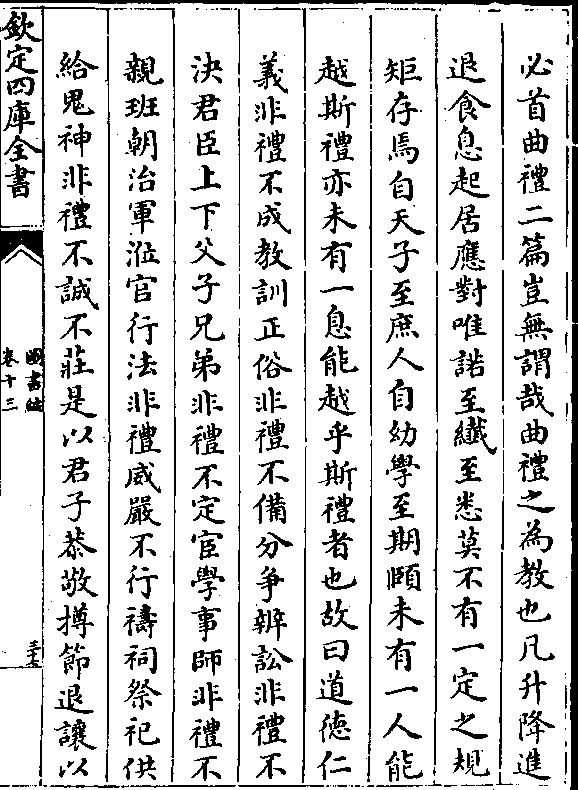 必首曲禮二篇豈無謂哉曲禮之為教也凡升降進
退食息起居應對唯諾至纖至悉莫不有一定之規
矩存焉自天子至庶人自幼學至期頤未有一人能
越斯禮亦未有一息能越乎斯禮者也故曰道德仁
義非禮不成教訓正俗非禮不備分爭辨訟非禮不
決君臣上下父子兄弟非禮不定宦學事師非禮不
親班朝治軍涖官行法非禮威嚴不行禱祠祭祀供
給鬼神非禮不誠不莊是以君子恭敬撙節退讓以
欽定四庫全書
圖書編
卷十三